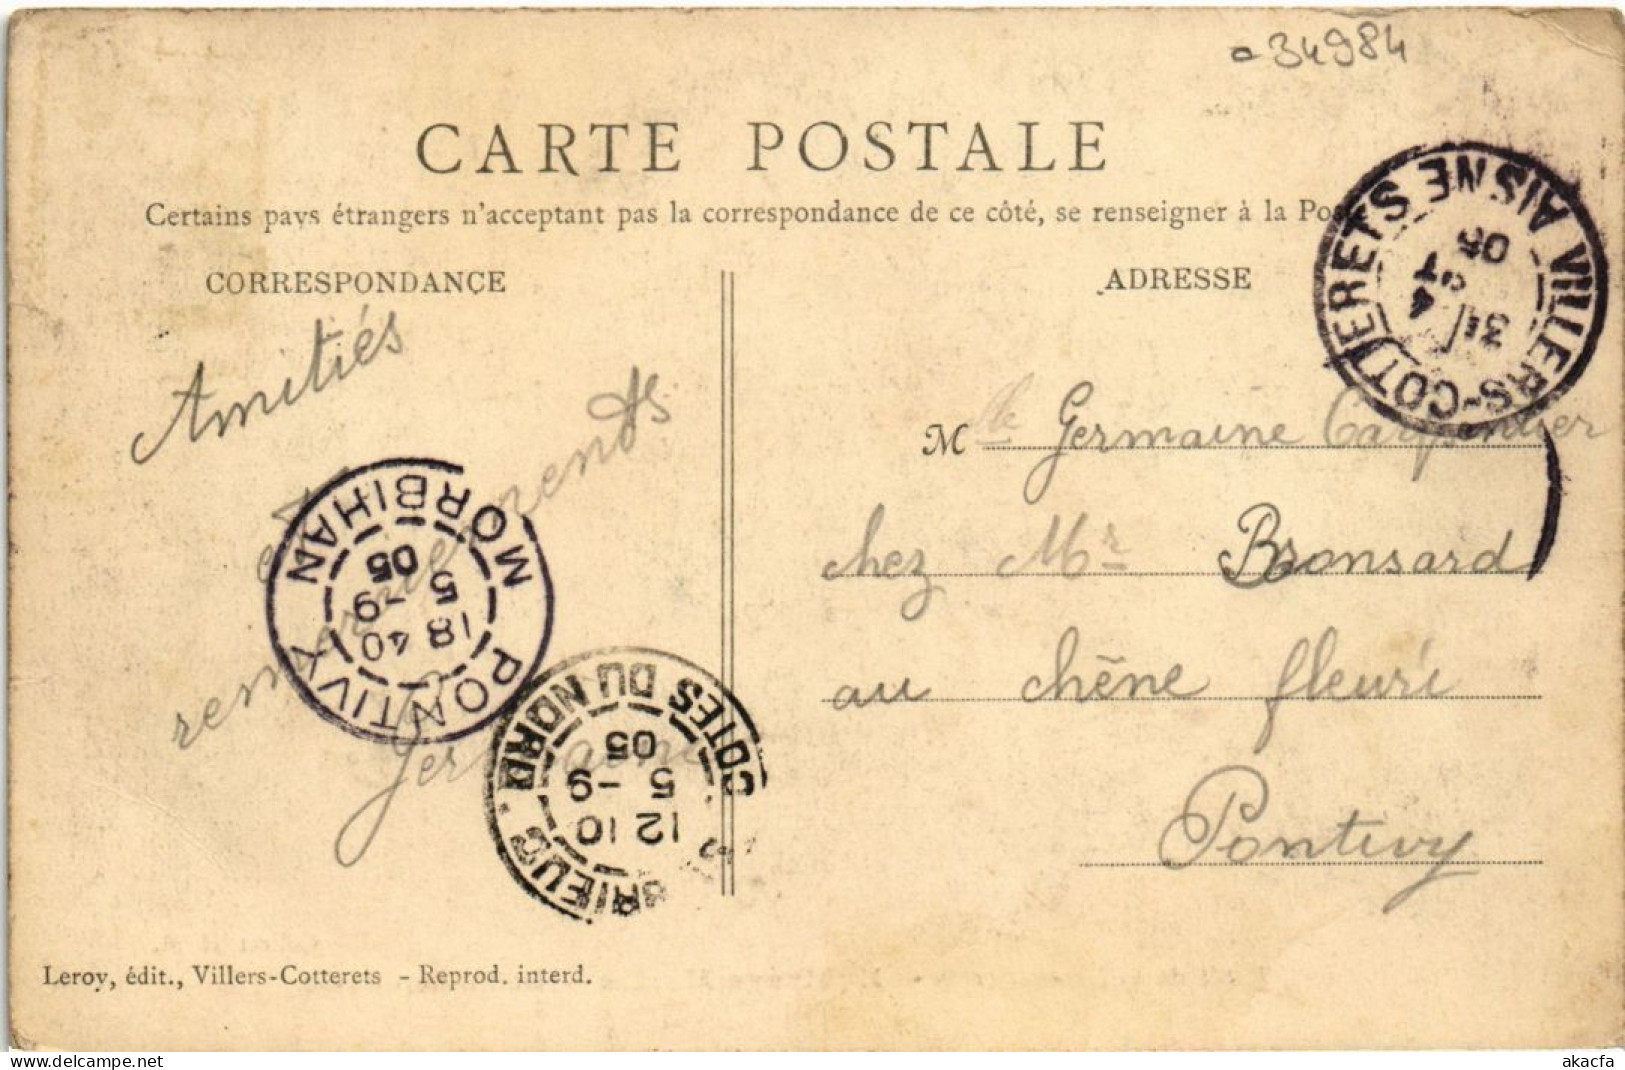 34984
CARTE POSTALE
Certains pays étrangers n'acceptant pas la correspondance de ce côté, se renseigner à la Poste
CORRESPONDANCE
ADRESSE
Amitiés
et
remerciements
Germaine
Mlle Germaine Carpentier
chez Mr Bronsard
au chêne fleuri
Pontivy
VILLERS-COTTERETS AISNE
3E
4
05
PONTIVY MORBIHAN
18 40
5 -9
05
BRIEUC COTES DU NORD
12 10
5 -9
05
Leroy, édit., Villers-Cotterets - Reprod. interd.
www.delcampe.net
akacfa